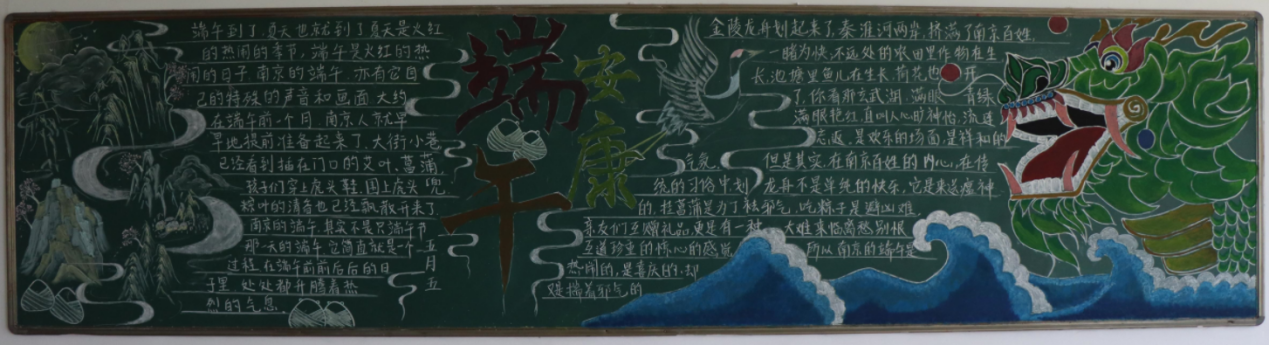 端午到了,夏天也就到了夏天是火红
的热闹的季节,端午是火红的热
闹的日子南京的端午,亦有它自
己的特殊的声音和画面大约
在端午前一个月南京人就早
早地提前准备起来了,大街小巷
已经看到插在门口的艾叶、菖蒲,
孩子们穿上虎头鞋,围上虎头兜
粽叶的清香也已经飘散开来了.
南京的端午,其实不是只端午节
那一天的端午它简直就是一个
过程,在端午前前后后的日
子里处处都升腾着热
烈的气息.
五月五
端午
安康
金陵龙舟划起来了,秦淮河两岸,挤满了南京百姓,
一睹为快,不远处的农田里作物在生
长,池塘里鱼儿在生长荷花也 开
了,你看那玄武湖,满眼 青绿
满眼艳红,直叫人心旷神怡,流连
忘返,是欢乐的场面,是祥和的
气氛. 但是其实,在南京百姓的内心,在传
统的习俗中划龙舟不是单纯的快乐,它是来送瘟神
的,挂菖蒲是为了祛邪气,吃粽子是避凶难,
亲友们互赠礼品更是有一种 大难来临离愁别恨
互道珍重的惊心的感觉 所以南京的端午是
热闹的,是喜庆的,却
又是揣着邪气的